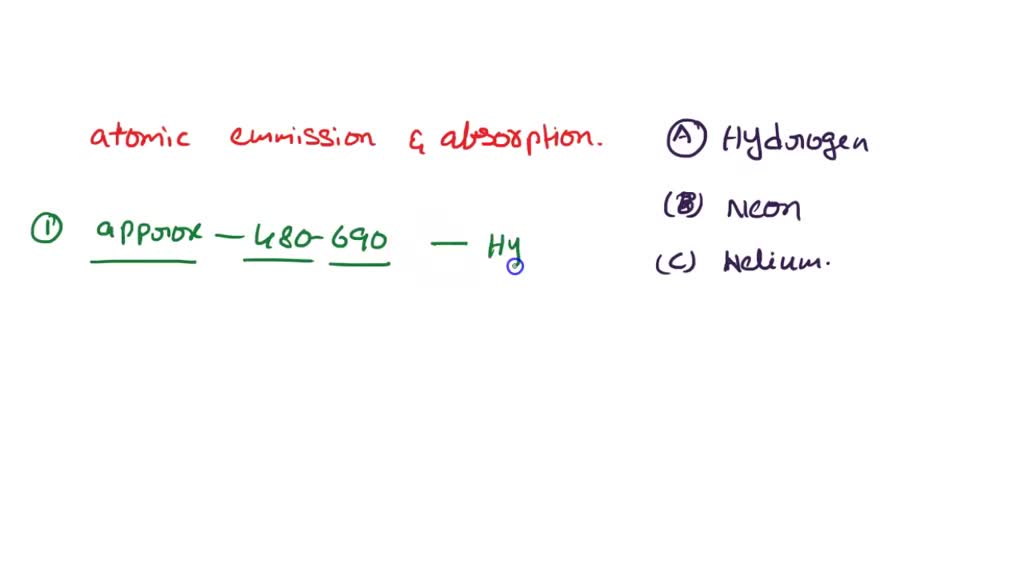 atomic emmission & absorption.
(A) Hydrogen
(B) Neon
(1) approx - 480-690 - Hy
(C) Helium.